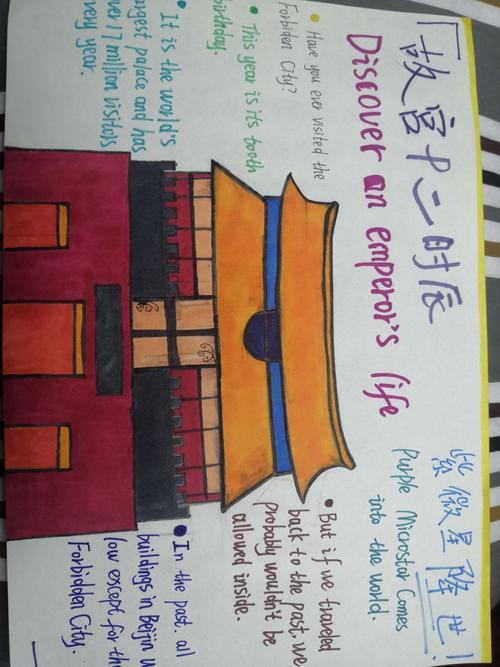 「故宫十二时辰
紫微星降世!
Discover an emperor's life
Purple Microstar Comes
into the world.
• Have you ever visited the
Forbiden City?
• This year is its 600th
birthday.
• It is the world's
argest palace and has
ver 17 million visitors
very year.
• But if we traveled
back to the past, we
probably wouldn't be
allowed inside.
• In the past, all
buildings in Beijin w
low except for th
Forbidden City.